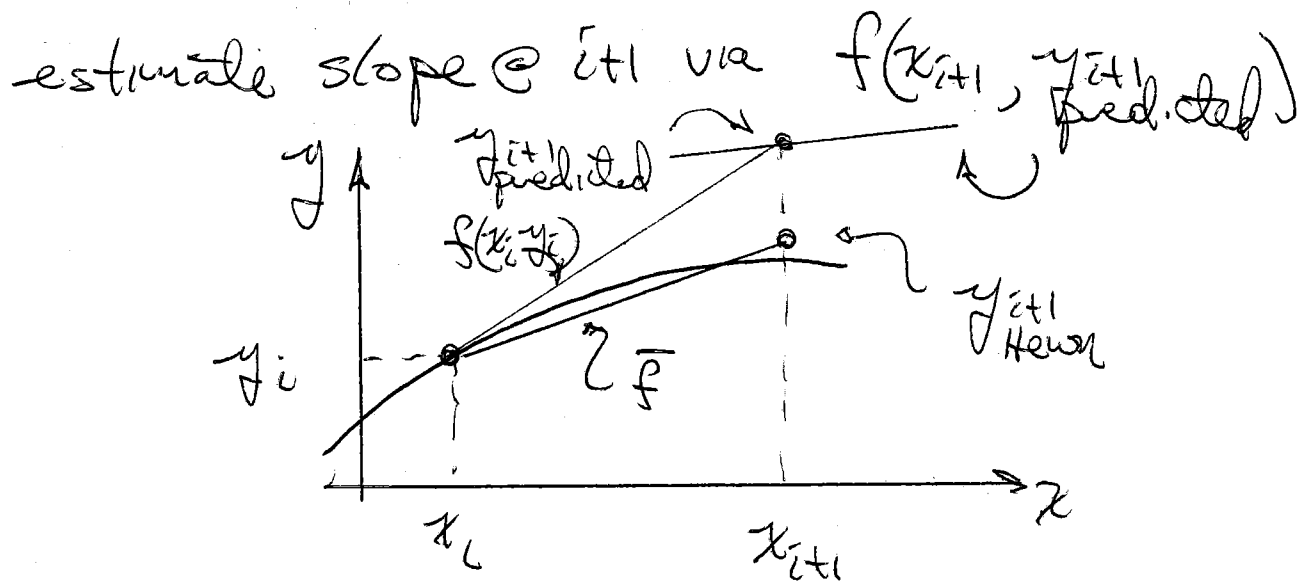 estimate slope @ i+1 via f(x_{i+1}, y^{i+1}_{predicted})
y
y^{i+1}_{predicted}
f(x_i y_i)
y^{i+1}_{Heun}
y_i
f̄
x
x_i
x_{i+1}